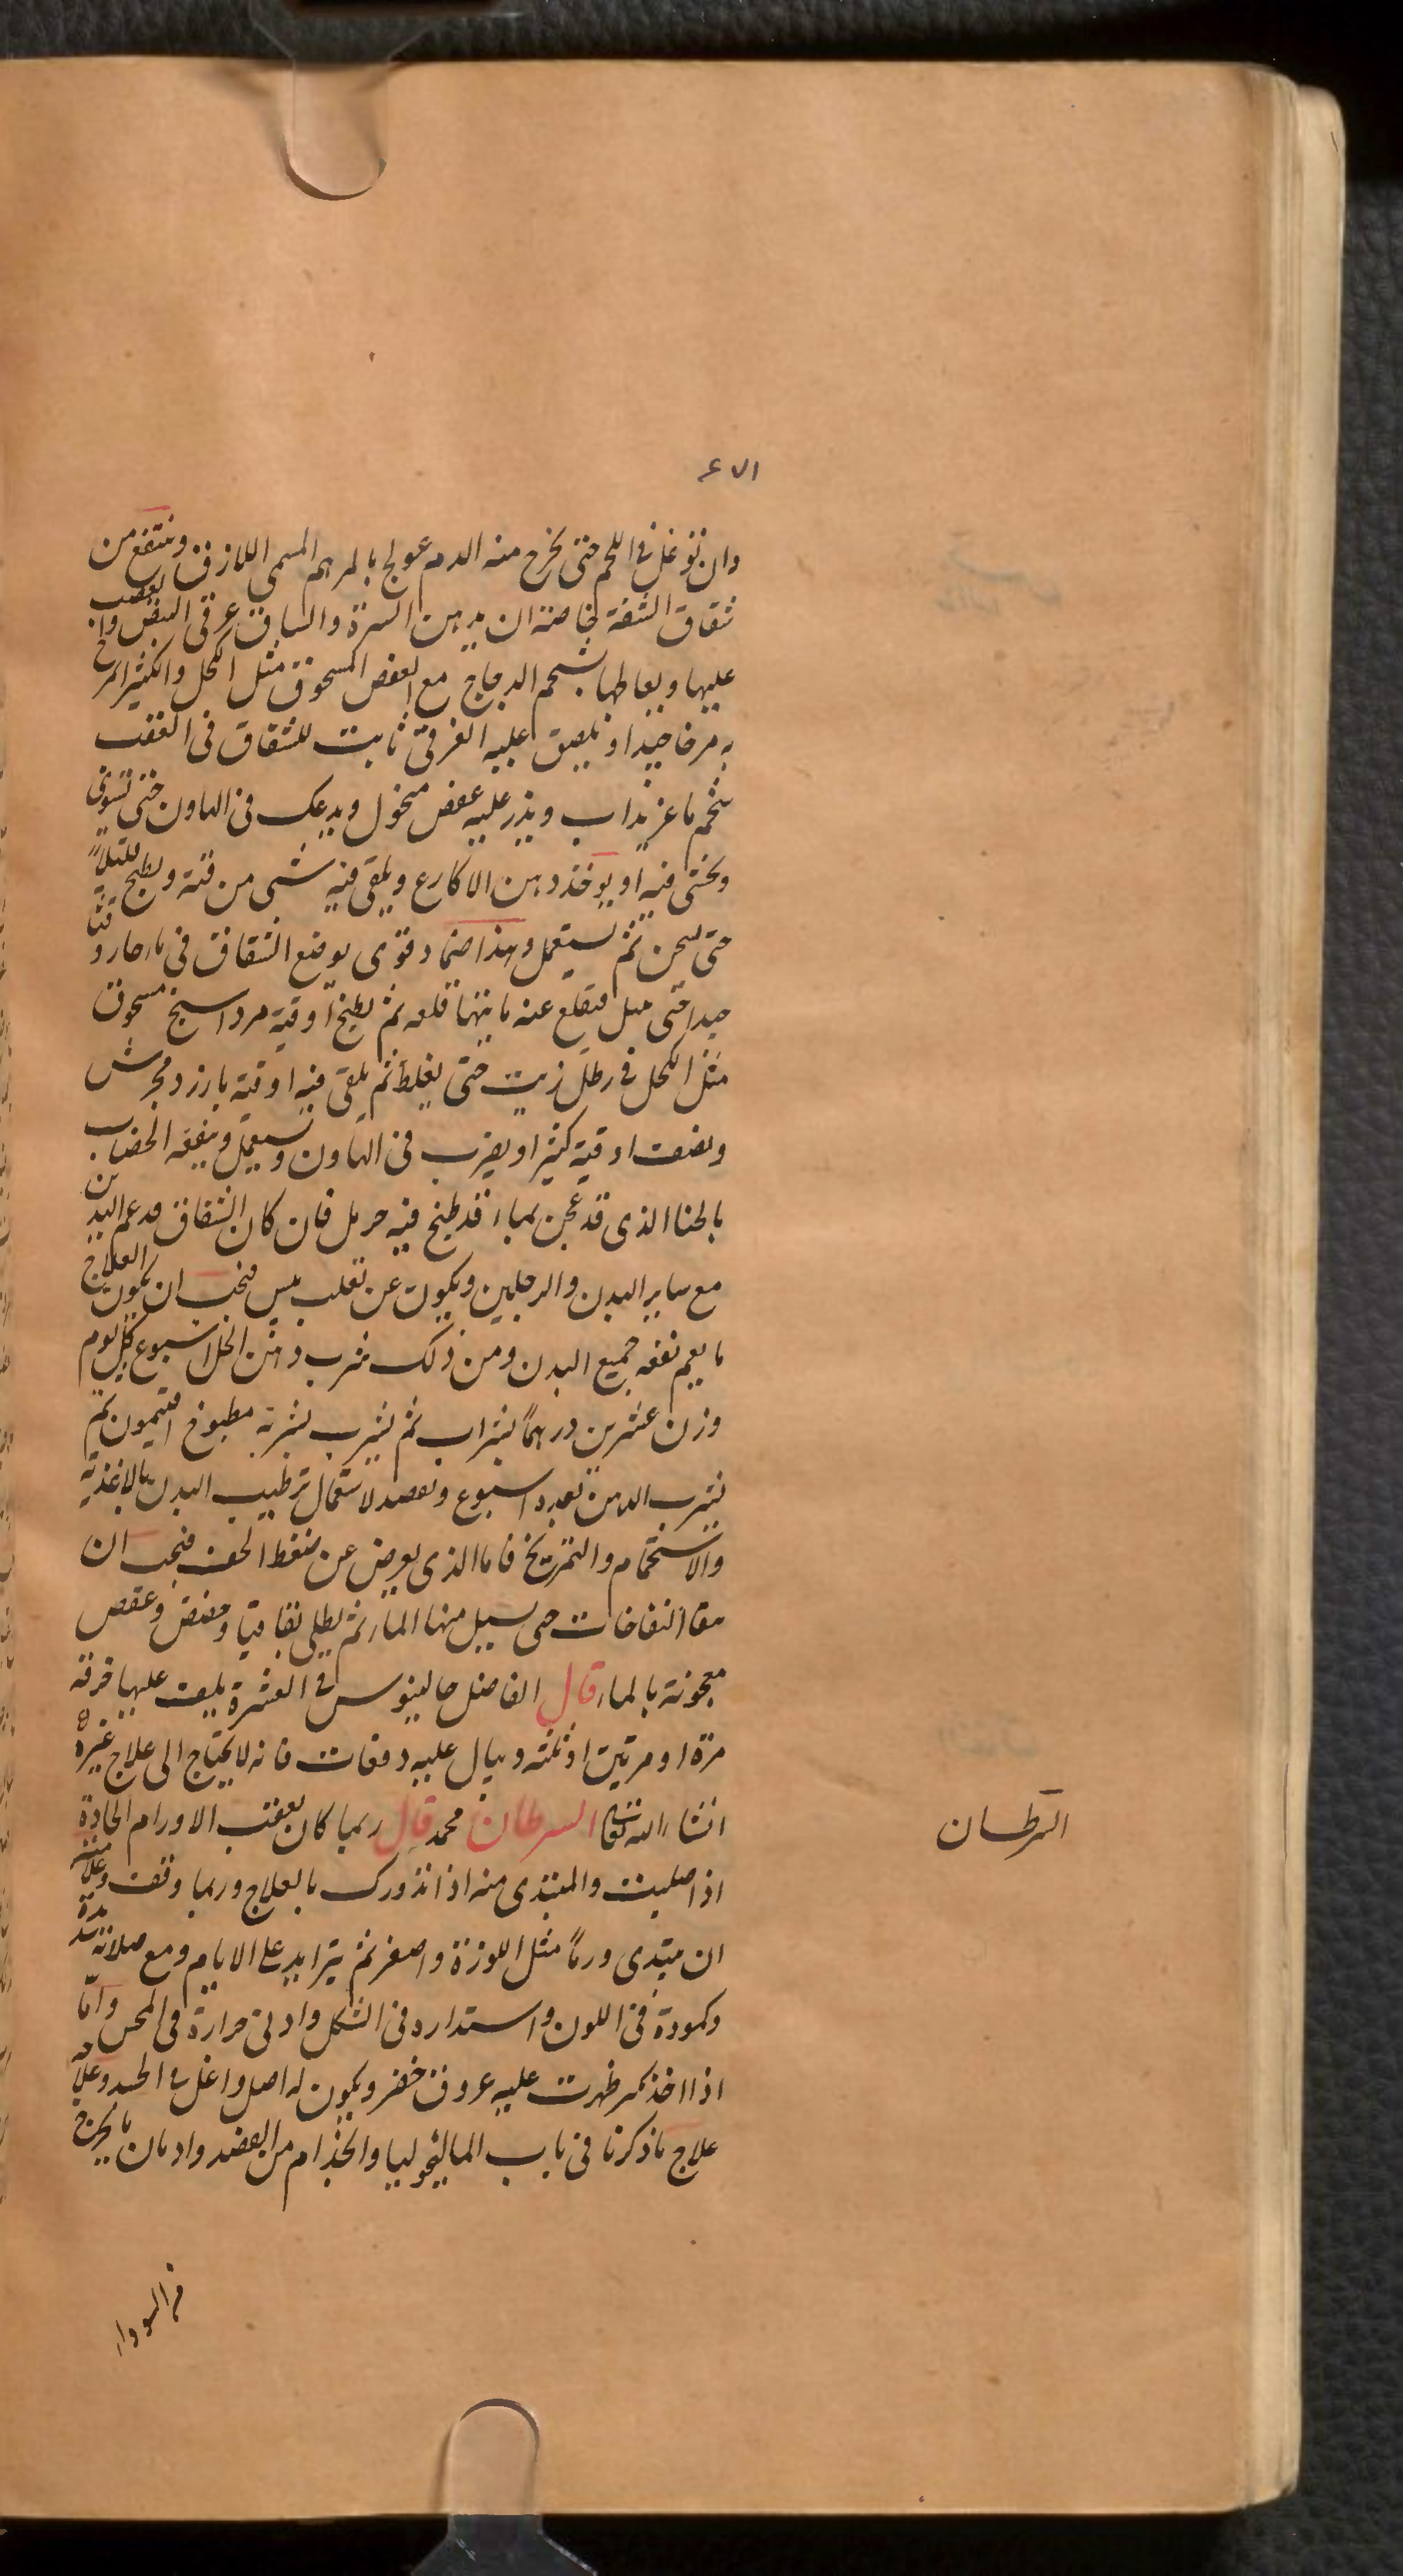 ٤٧١
وان توغل فى اللحم حتى يخرج منه الدم عولج بالمرهم المسمى اللازق وينتفع من
شقاق الشفة بخاصة ان يدهن السرة والساق عرقى البيض
عليها ويعالجها بشحم الدجاج مع العفص المسحوق مثل الكحل والكثيرا يمرخ
به مرخا جيدا ويلصق عليه الغرقى ثابت للشقاق فى العقب
شحم ماعز يذاب ويذر عليه عفص منخول ويدعك فى الهاون حتى تستوى
ويحشى فيه او يوخذ دهن الاكارع ويلقى فيه شى من قنة ويطبخ قليلاً
حتى يسخن ثم يستعمل وهذا ضماد قوى يوضع الشقاق فى ماء حار
جيدا حتى يبل فيقلع عنه ما يتهيا قلعه ثم يطبخ اوقية مرداسنج مسحوق
مثل الكحل فى رطل زيت حتى يغلظ ثم يلقى فيه اوقية بارزد مجرش
ونصف اوقية كثيرا ويضرب فى الهاون ويستعمل وينفعه الخضاب
بالحنا الذى قد عجن بماء قد طبخ فيه حرمل فان كان الشقاق قد عم اليدين
مع ساير البدن والرجلين ويكون عن تغلب يبس فيجب ان يكون العلاج
ما يعم نفعه جميع البدن ومن ذلك شرب دهن الخل اسبوع كل يوم
وزن عشرين درهماً بشراب ثم يشرب بشربة مطبوخ افتيمون ثم
يشرب الدهن بعده اسبوع ويقصد لاستعمال ترطيب البدن بالاغذية
والاستحمام والتمريخ فاما الذى يعرض عن ضغط الخف فيجب ان
يفقا النفاخات حتى يسيل منها الماء ثم يطلى بقاقيا وحضض وعفص
معجونة بالماء قال الفاضل جالينوس فى العشرة يلف عليها خرقة
مرة او مرتين او ثلثه ويبال عليه دفعات فانه لا يحتاج الى علاج غيره
انشاء الله تعالى السرطان محمد قال ربما كان بعقب الاورام الحادة
اذا صلبت والمبتدى منه اذا تدورك بالعلاج وربما وقف وعلامته
ان يبتدى ورماً مثل اللوزة واصغر ثم يتزايد على الايام ومع صلابته شدة
وكمودة فى اللون واستدارة فى الشكل وادنى حرارة فى المجس واما
اذا اخذ يكبر ظهرت عليه عروق خضر ويكون له اصل واغل فى الجسد وعلاجه
علاج ما ذكرنا فى باب الماليخوليا والجذام من الفصد وادمان ما يخرج
السرطان
السوداء